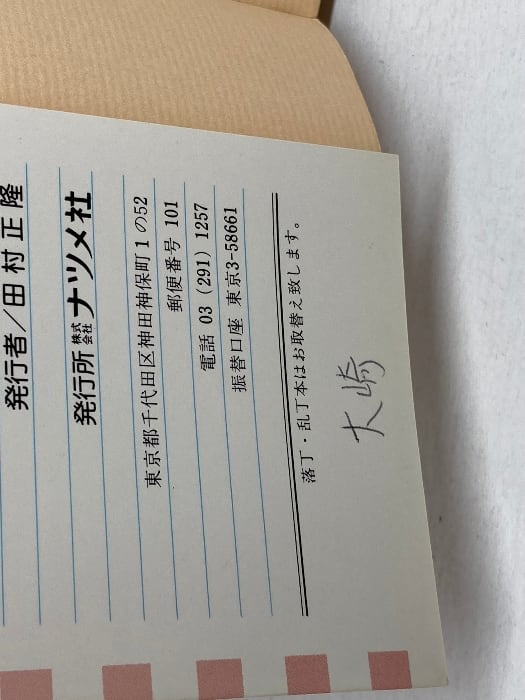 発行者/田村正隆
発行所 株式会社 ナツメ社
東京都千代田区神田神保町1の52
郵便番号 101
電話 03 (291) 1257
振替口座 東京3-58661
落丁・乱丁本はお取替え致します。
大崎